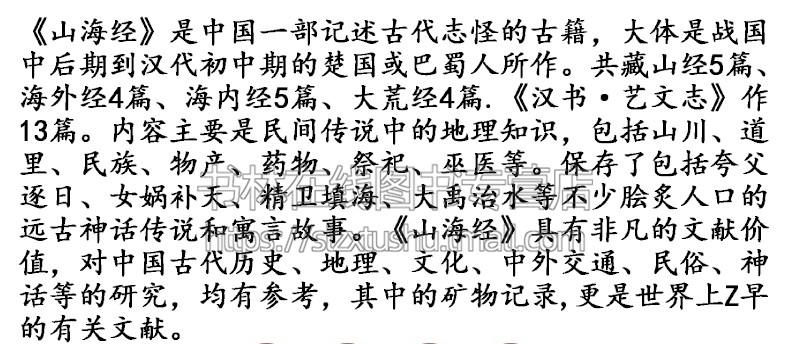 《山海经》是中国一部记述古代志怪的古籍，大体是战国
中后期到汉代初中期的楚国或巴蜀人所作。共藏山经5篇、
海外经4篇、海内经5篇、大荒经4篇.《汉书·艺文志》作
13篇。内容主要是民间传说中的地理知识，包括山川、道
里、民族、物产、药物、祭祀、巫医等。保存了包括夸父
逐日、女娲补天、精卫填海、大禹治水等不少脍炙人口的
远古神话传说和寓言故事。《山海经》具有非凡的文献价
值，对中国古代历史、地理、文化、中外交通、民俗、神
话等的研究，均有参考，其中的矿物记录,更是世界上Z早
的有关文献。